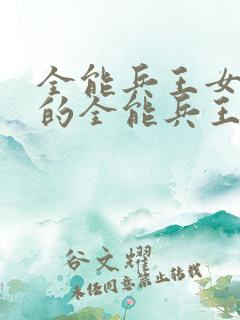 全能兵王女
的全能兵王
谷文耀
未经同意禁止转载